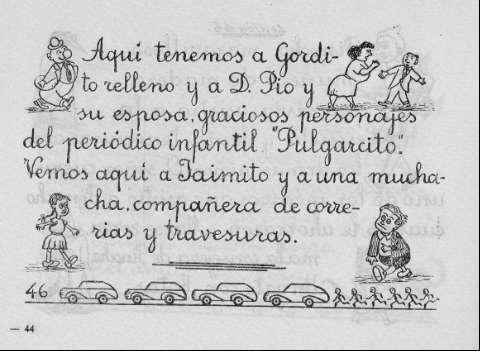 Aquí tenemos a Gordi-
to relleno y a D. Pío y
su esposa, graciosos personajes
del periódico infantil "Pulgarcito".
Vemos aquí a Jaimito y a una mucha-
cha, compañera de corre-
rias y travesuras.
46
— 44